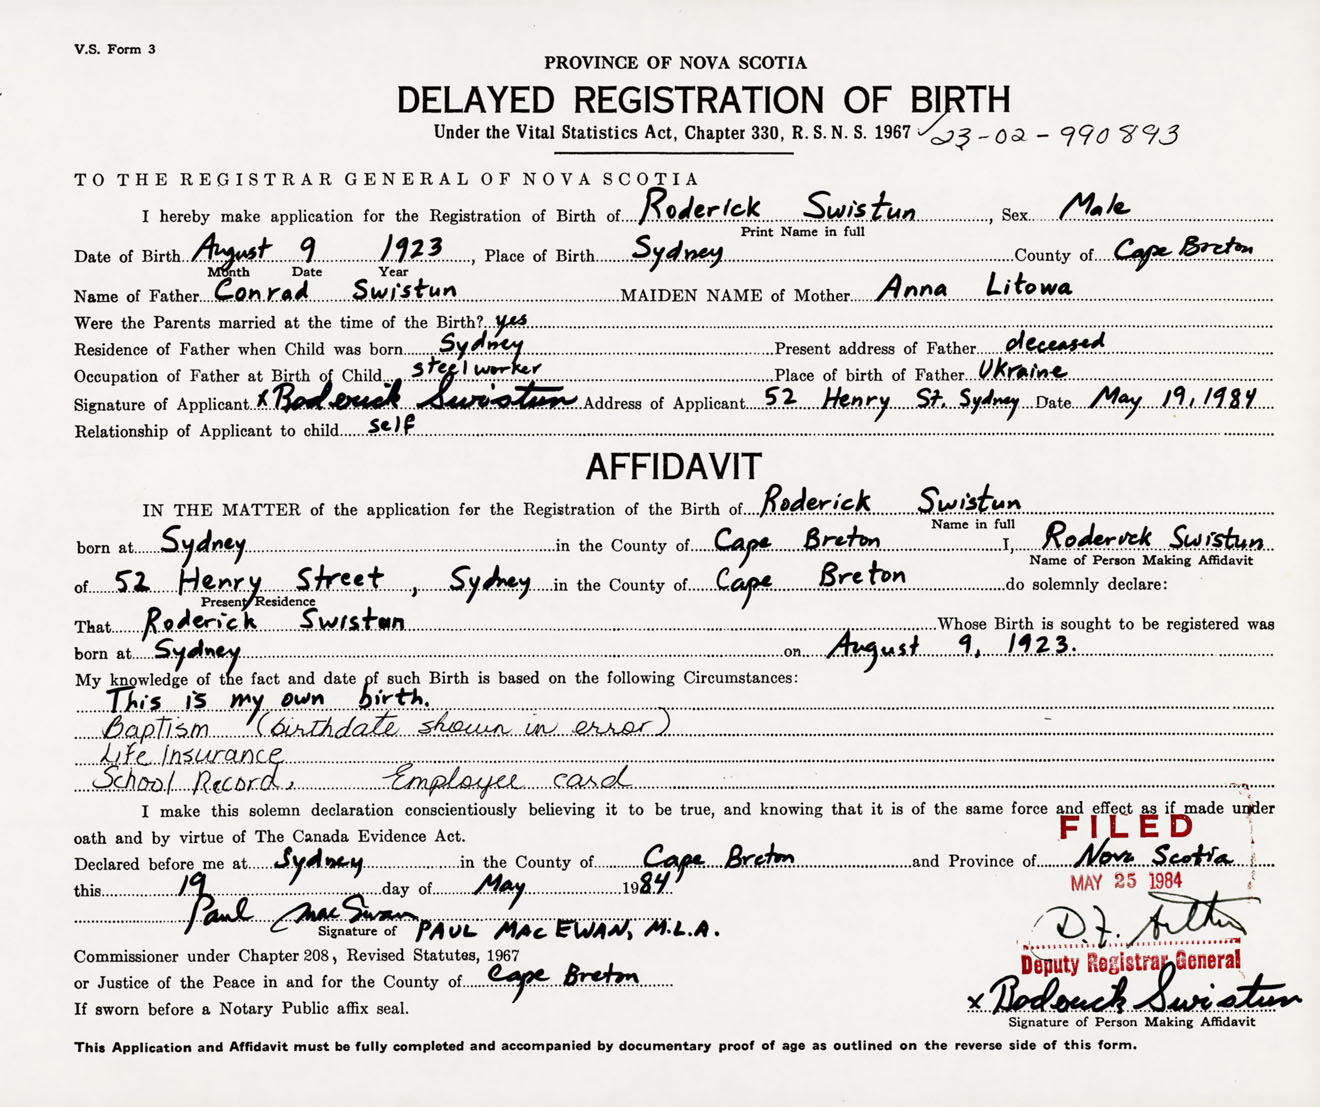 V.S. Form 3
PROVINCE OF NOVA SCOTIA
DELAYED REGISTRATION OF BIRTH
Under the Vital Statistics Act, Chapter 330, R. S. N. S. 1967 ✓23-02-990893
TO THE REGISTRAR GENERAL OF NOVA SCOTIA
I hereby make application for the Registration of Birth of Roderick Swistun, Sex Male
Print Name in full
Date of Birth August 9 1923, Place of Birth Sydney County of Cape Breton
Month Date Year
Name of Father Conrad Swistun MAIDEN NAME of Mother Anna Litowa
Were the Parents married at the time of the Birth? yes
Residence of Father when Child was born Sydney Present address of Father deceased
Occupation of Father at Birth of Child steelworker Place of birth of Father Ukraine
Signature of Applicant x Roderick Swistun Address of Applicant 52 Henry St. Sydney Date May 19, 1984
Relationship of Applicant to child self
AFFIDAVIT
IN THE MATTER of the application for the Registration of the Birth of Roderick Swistun
Name in full
born at Sydney in the County of Cape Breton I, Roderick Swistun
Name of Person Making Affidavit
of 52 Henry Street, Sydney in the County of Cape Breton do solemnly declare:
Present Residence
That Roderick Swistun Whose Birth is sought to be registered was
born at Sydney on August 9, 1923.
My knowledge of the fact and date of such Birth is based on the following Circumstances:
This is my own birth.
Baptism (birthdate shown in error)
Life Insurance
School Record, Employee card
I make this solemn declaration conscientiously believing it to be true, and knowing that it is of the same force and effect as if made under
oath and by virtue of The Canada Evidence Act.
FILED
Declared before me at Sydney in the County of Cape Breton and Province of Nova Scotia
this 19 day of May 1984
MAY 25 1984
Paul MacEwan
Signature of PAUL MACEWAN, M.L.A.
D.F.
Commissioner under Chapter 208, Revised Statutes, 1967
Deputy Registrar General
or Justice of the Peace in and for the County of Cape Breton
x Roderick Swistun
If sworn before a Notary Public affix seal.
Signature of Person Making Affidavit
This Application and Affidavit must be fully completed and accompanied by documentary proof of age as outlined on the reverse side of this form.